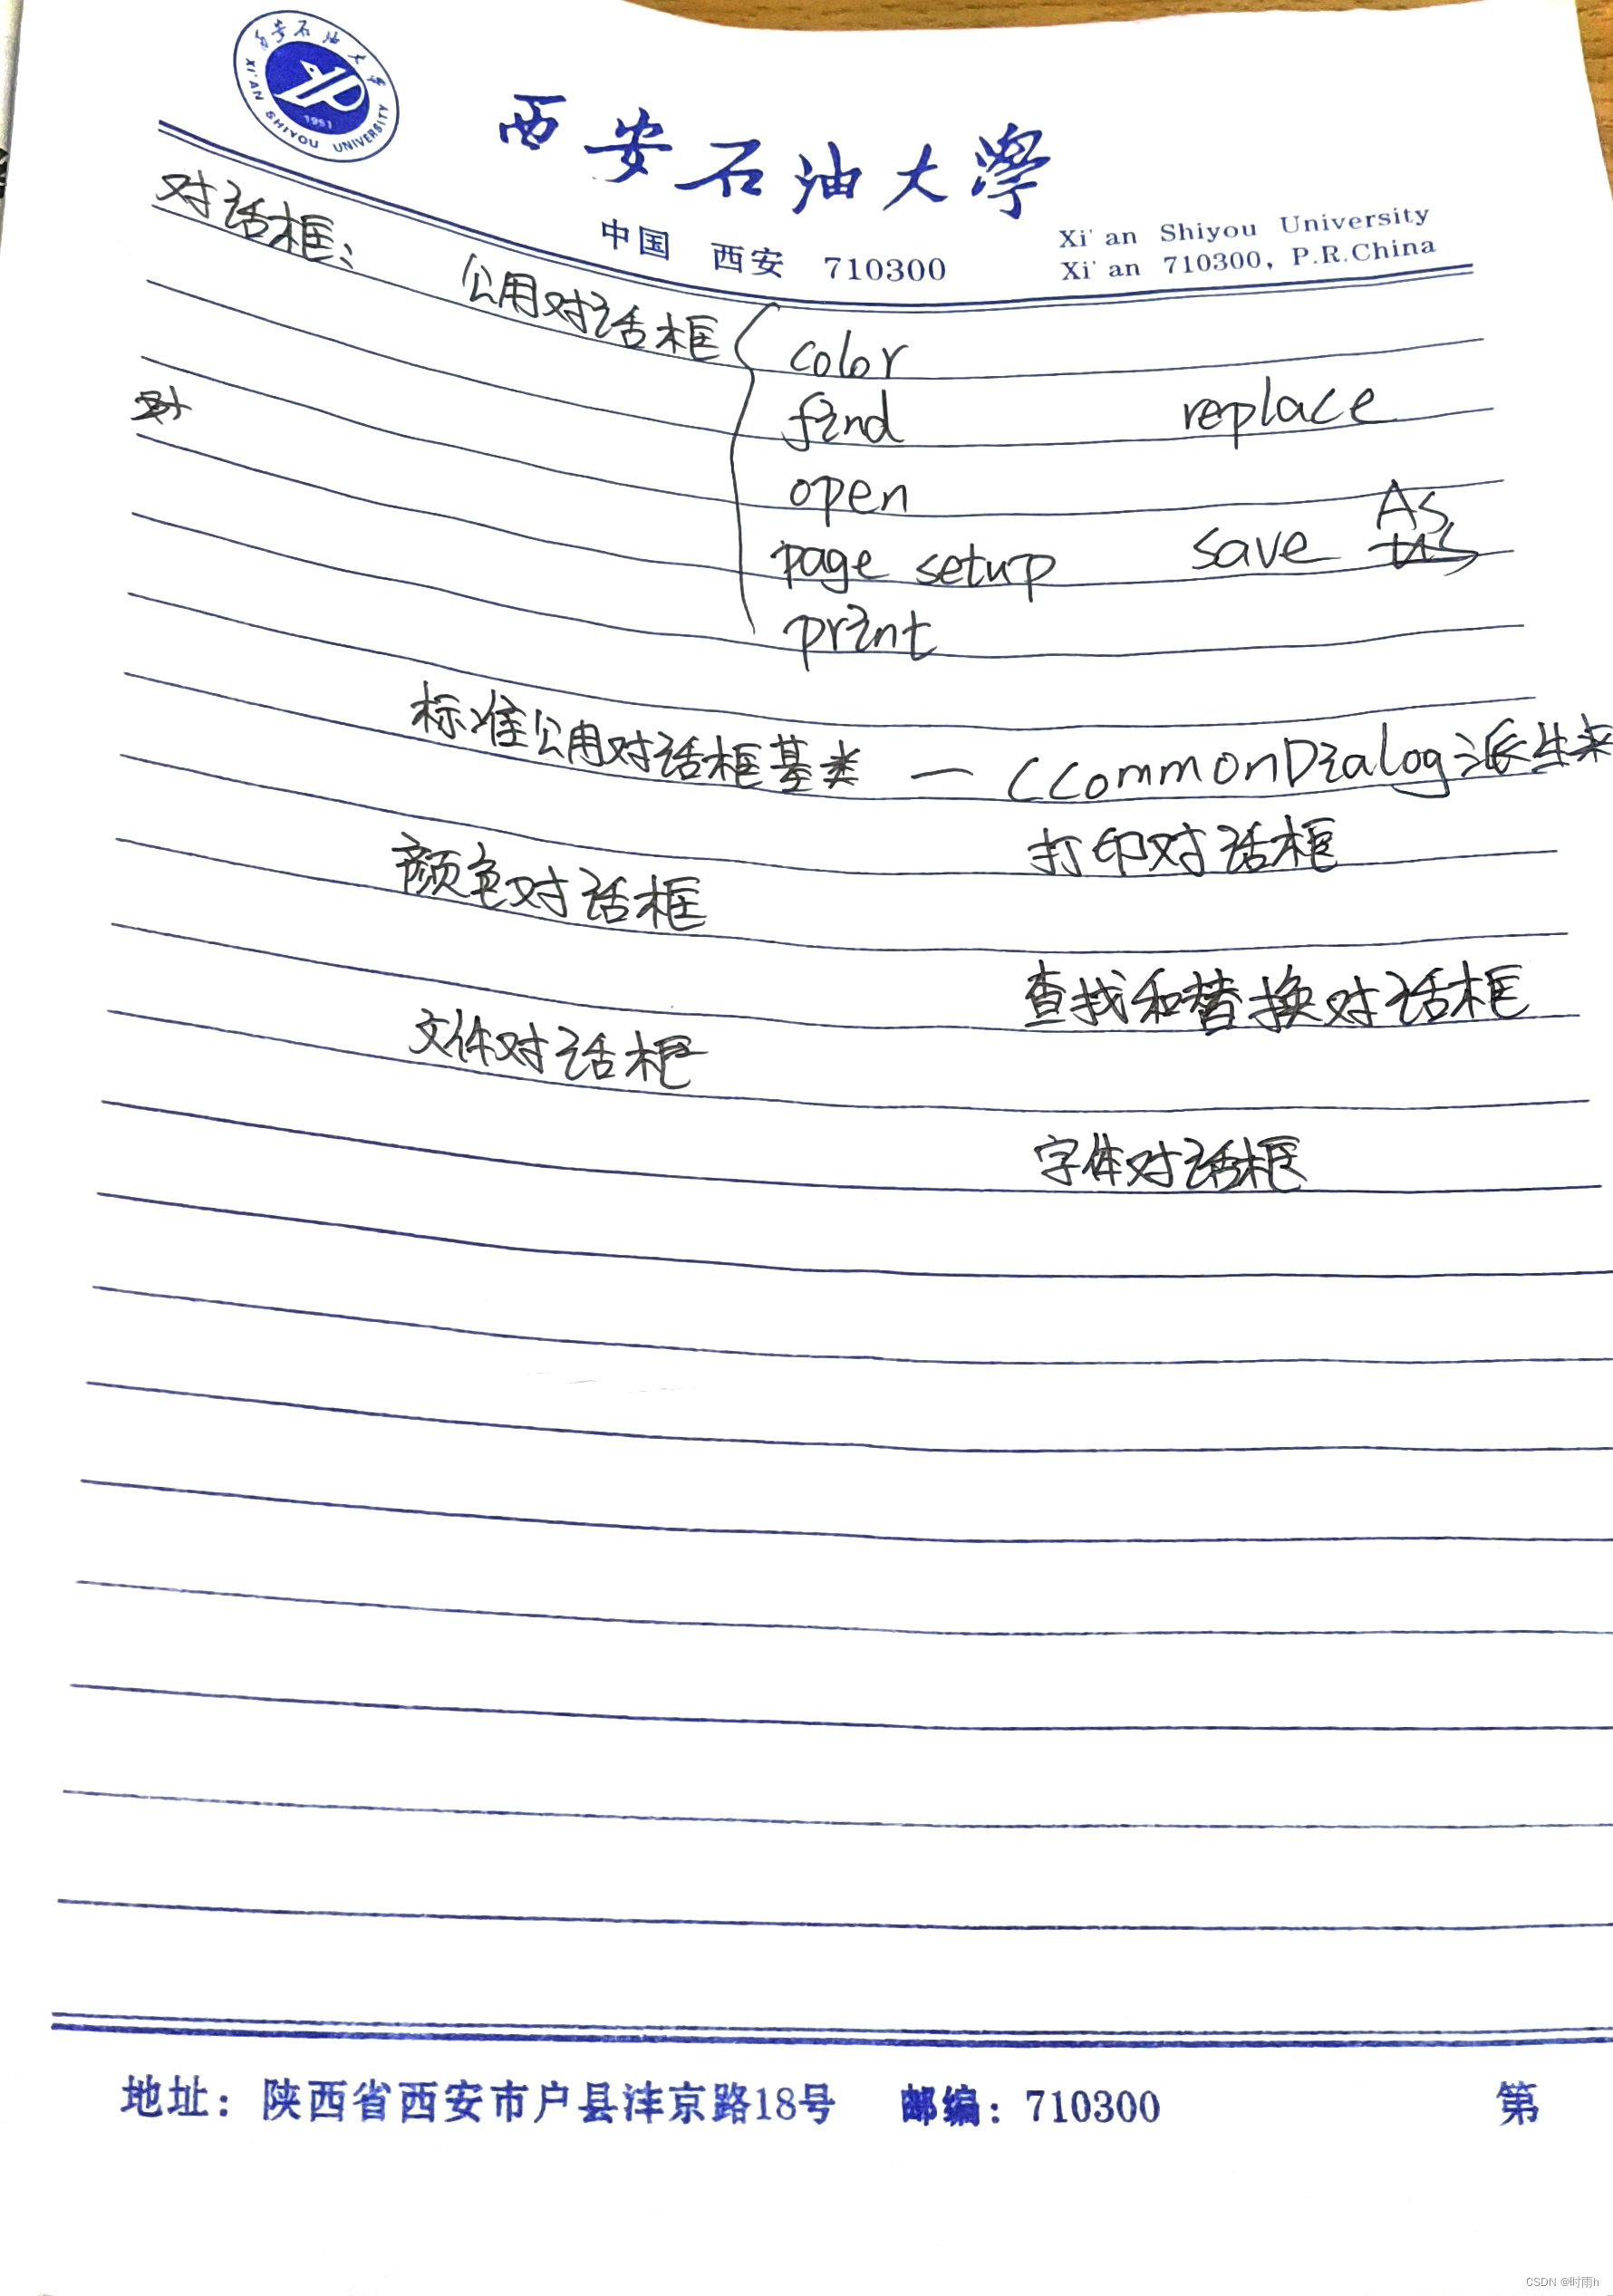 西安石油大学
XI'AN SHIYOU UNIVERSITY
1951
西安石油大學
中国 西安 710300
Xi'an Shiyou University
Xi'an 710300, P.R.China
对话框:
公用对话框 color
find replace
open
page setup save As
print
标准公用对话框基类 — CCommonDialog派生来
颜色对话框 打印对话框
文件对话框 查找和替换对话框
字体对话框
地址: 陕西省西安市户县沣京路18号 邮编: 710300 第
CSDN @时雨h